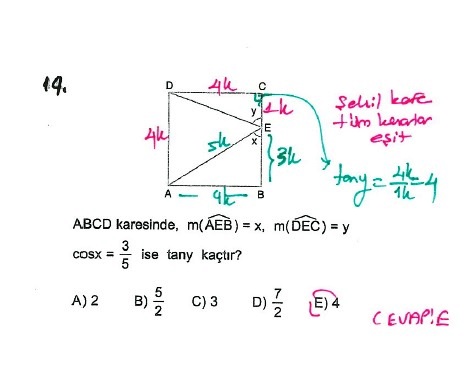 19.
D 4k C
y 1k
4k 5k E
x 3k
A 4k B
Şekil kare
tüm kenarlar
eşit
tany = 4k/1k = 4
ABCD karesinde, m(AEB) = x, m(DEC) = y
cosx = 3/5 ise tany kaçtır?
A) 2 B) 5/2 C) 3 D) 7/2 E) 4
CEVAP:E